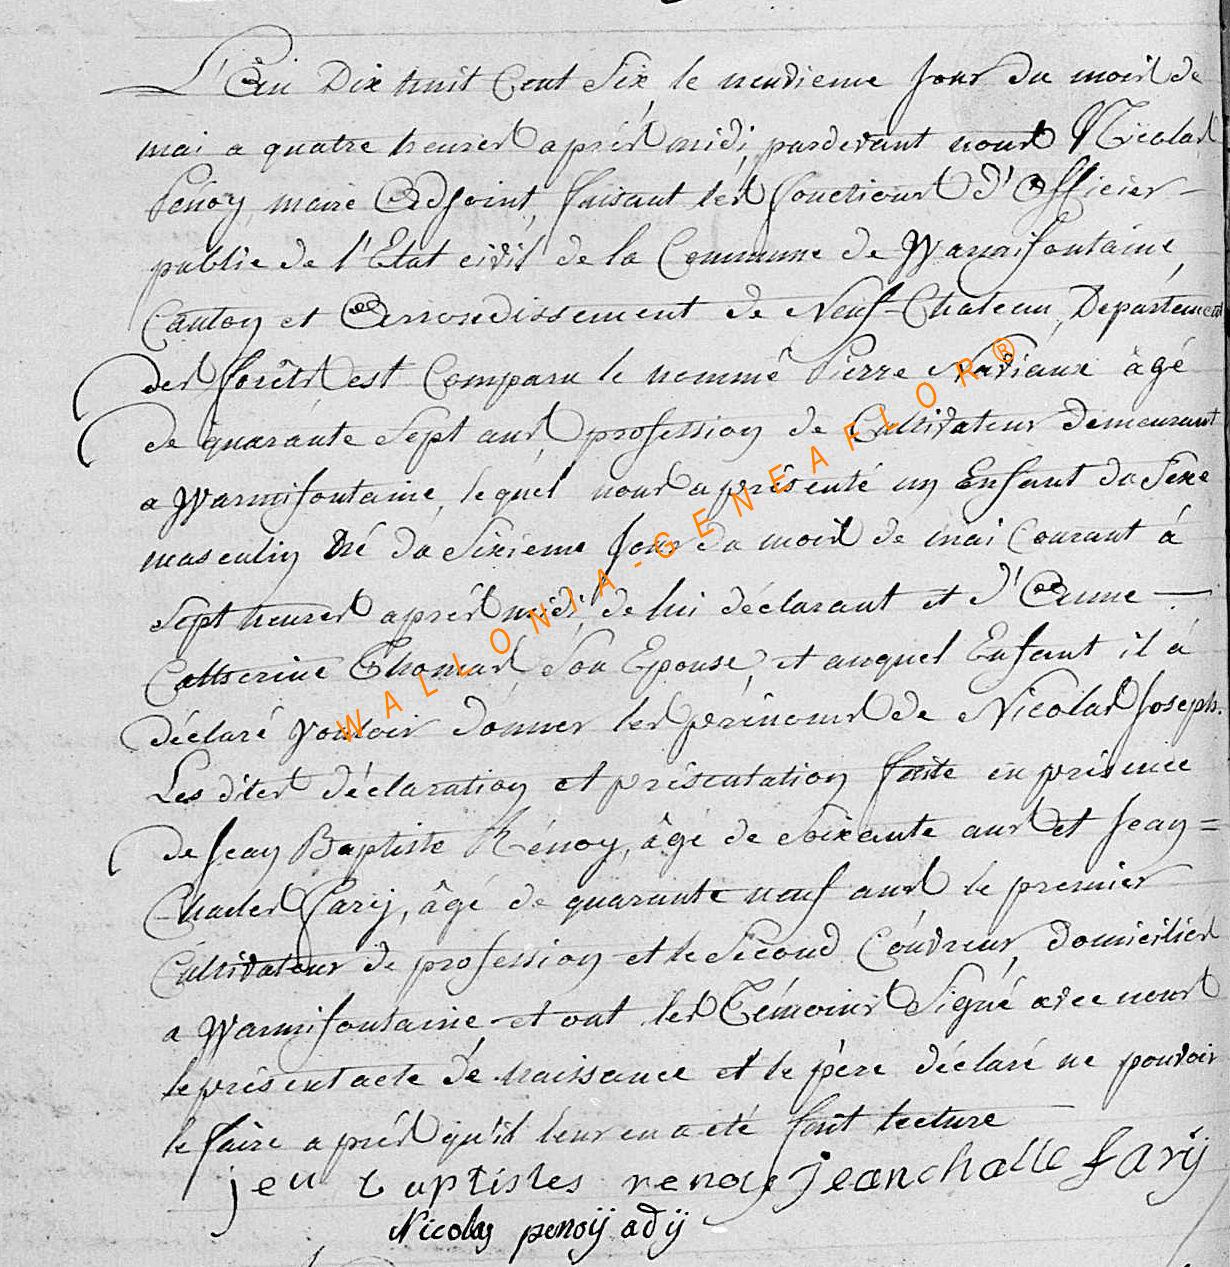 L'An Dix huit Cent Six le neuvieme Jour du mois de
mai a quatre heures après midi, pardevant nous Nicolas
Pénoy maire Adjoint, faisant les fonctions d'Officier
public de l'Etat civil de la Commune de Warmifontaine,
Canton et Arrondissement de Neuf-Chateau, Département
des forêts est Comparu le nommé Pierre Naviaux âgé
de quarante Sept ans profession de Cultivateur demeurant
a Warmifontaine, lequel nous a présenté un Enfant du Sexe
masculin Né du Sixieme Jour du mois de mai Courant á
Sept heures après midi, de lui déclarant et d'Anne
Catherine Thomas Son Epouse, et auquel Enfant il á
déclaré vouloir donner les prénoms de Nicolas Joseph.
Les dites déclaration et présentation faite en présence
de Jean Baptiste Rénoy, âgé de Soixante ans et Jean=
Charles Farij, âgé de quarante neuf ans le premier
Cultivateur de profession et le Second Couvreur, domiciliés
a Warmifontaine et ont les Témoins Signé avec nous
le présent acte de naissance et le père déclaré ne pouvoir
le faire après qu'il leur en a eté fait lecture
jeu baptistes renoy jean challe farij
Nicolas penoij adij
WALLONIA-GENEAFLOR®